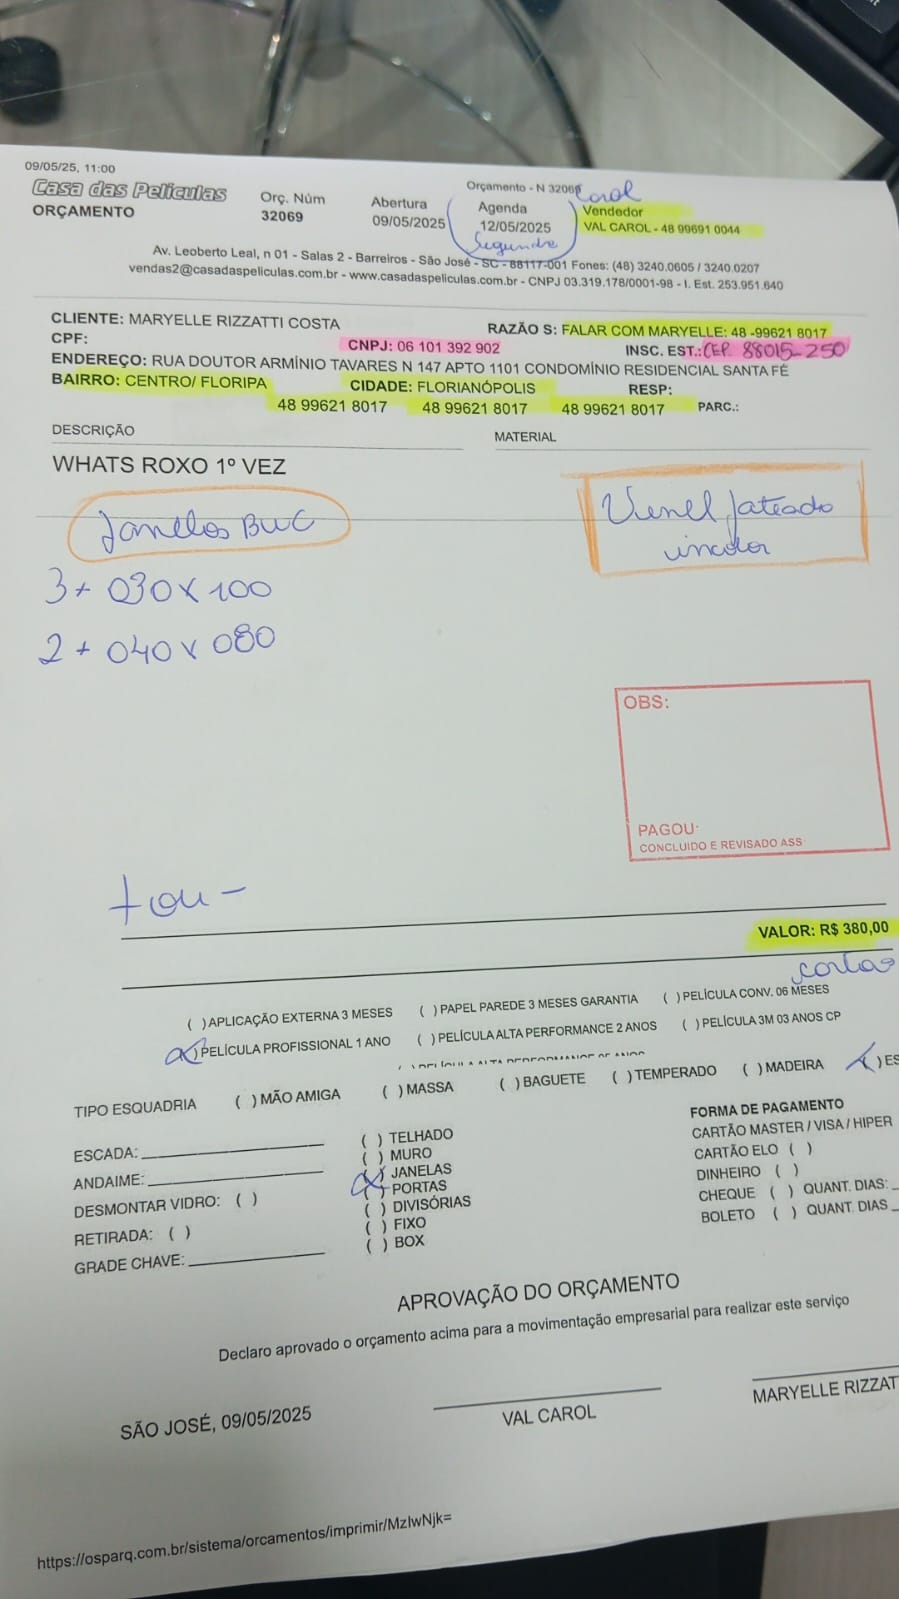 09/05/25, 11:00
Orçamento - N 32069
Carol
Casa das Películas
ORÇAMENTO
Orç. Núm
32069
Abertura
09/05/2025
Agenda
12/05/2025
Segunda
Vendedor
VAL CAROL - 48 99691 0044
Av. Leoberto Leal, n 01 - Salas 2 - Barreiros - São José - SC - 88117-001 Fones: (48) 3240.0605 / 3240.0207
vendas2@casadaspeliculas.com.br - www.casadaspeliculas.com.br - CNPJ 03.319.178/0001-98 - I. Est. 253.951.640
CLIENTE: MARYELLE RIZZATTI COSTA
RAZÃO S: FALAR COM MARYELLE: 48 -99621 8017
CPF:
CNPJ: 06 101 392 902
INSC. EST.: CEP. 88015-250
ENDEREÇO: RUA DOUTOR ARMÍNIO TAVARES N 147 APTO 1101 CONDOMÍNIO RESIDENCIAL SANTA FÉ
BAIRRO: CENTRO/ FLORIPA
CIDADE: FLORIANÓPOLIS
RESP:
48 99621 8017 48 99621 8017 48 99621 8017 PARC.:
DESCRIÇÃO
MATERIAL
WHATS ROXO 1º VEZ
Janelas
jateado
incolor
3 + 030 x 100
2 + 040 x 080
OBS:
PAGOU:
CONCLUIDO E REVISADO ASS
+ ou -
VALOR: R$ 380,00
( ) APLICAÇÃO EXTERNA 3 MESES ( ) PAPEL PAREDE 3 MESES GARANTIA ( ) PELÍCULA CONV. 06 MESES
(x) PELÍCULA PROFISSIONAL 1 ANO ( ) PELÍCULA ALTA PERFORMANCE 2 ANOS ( ) PELÍCULA 3M 03 ANOS CP
TIPO ESQUADRIA ( ) MÃO AMIGA ( ) MASSA ( ) BAGUETE ( ) TEMPERADO ( ) MADEIRA (x) ES
ESCADA:
ANDAIME:
DESMONTAR VIDRO: ( )
RETIRADA: ( )
GRADE CHAVE:
( ) TELHADO
( ) MURO
(x) JANELAS
( ) PORTAS
( ) DIVISÓRIAS
( ) FIXO
( ) BOX
FORMA DE PAGAMENTO
CARTÃO MASTER / VISA / HIPER
CARTÃO ELO ( )
DINHEIRO ( )
CHEQUE ( ) QUANT. DIAS:
BOLETO ( ) QUANT. DIAS
APROVAÇÃO DO ORÇAMENTO
Declaro aprovado o orçamento acima para a movimentação empresarial para realizar este serviço
SÃO JOSÉ, 09/05/2025
VAL CAROL
MARYELLE RIZZAT
https://osparq.com.br/sistema/orcamentos/imprimir/MzIwNjk=